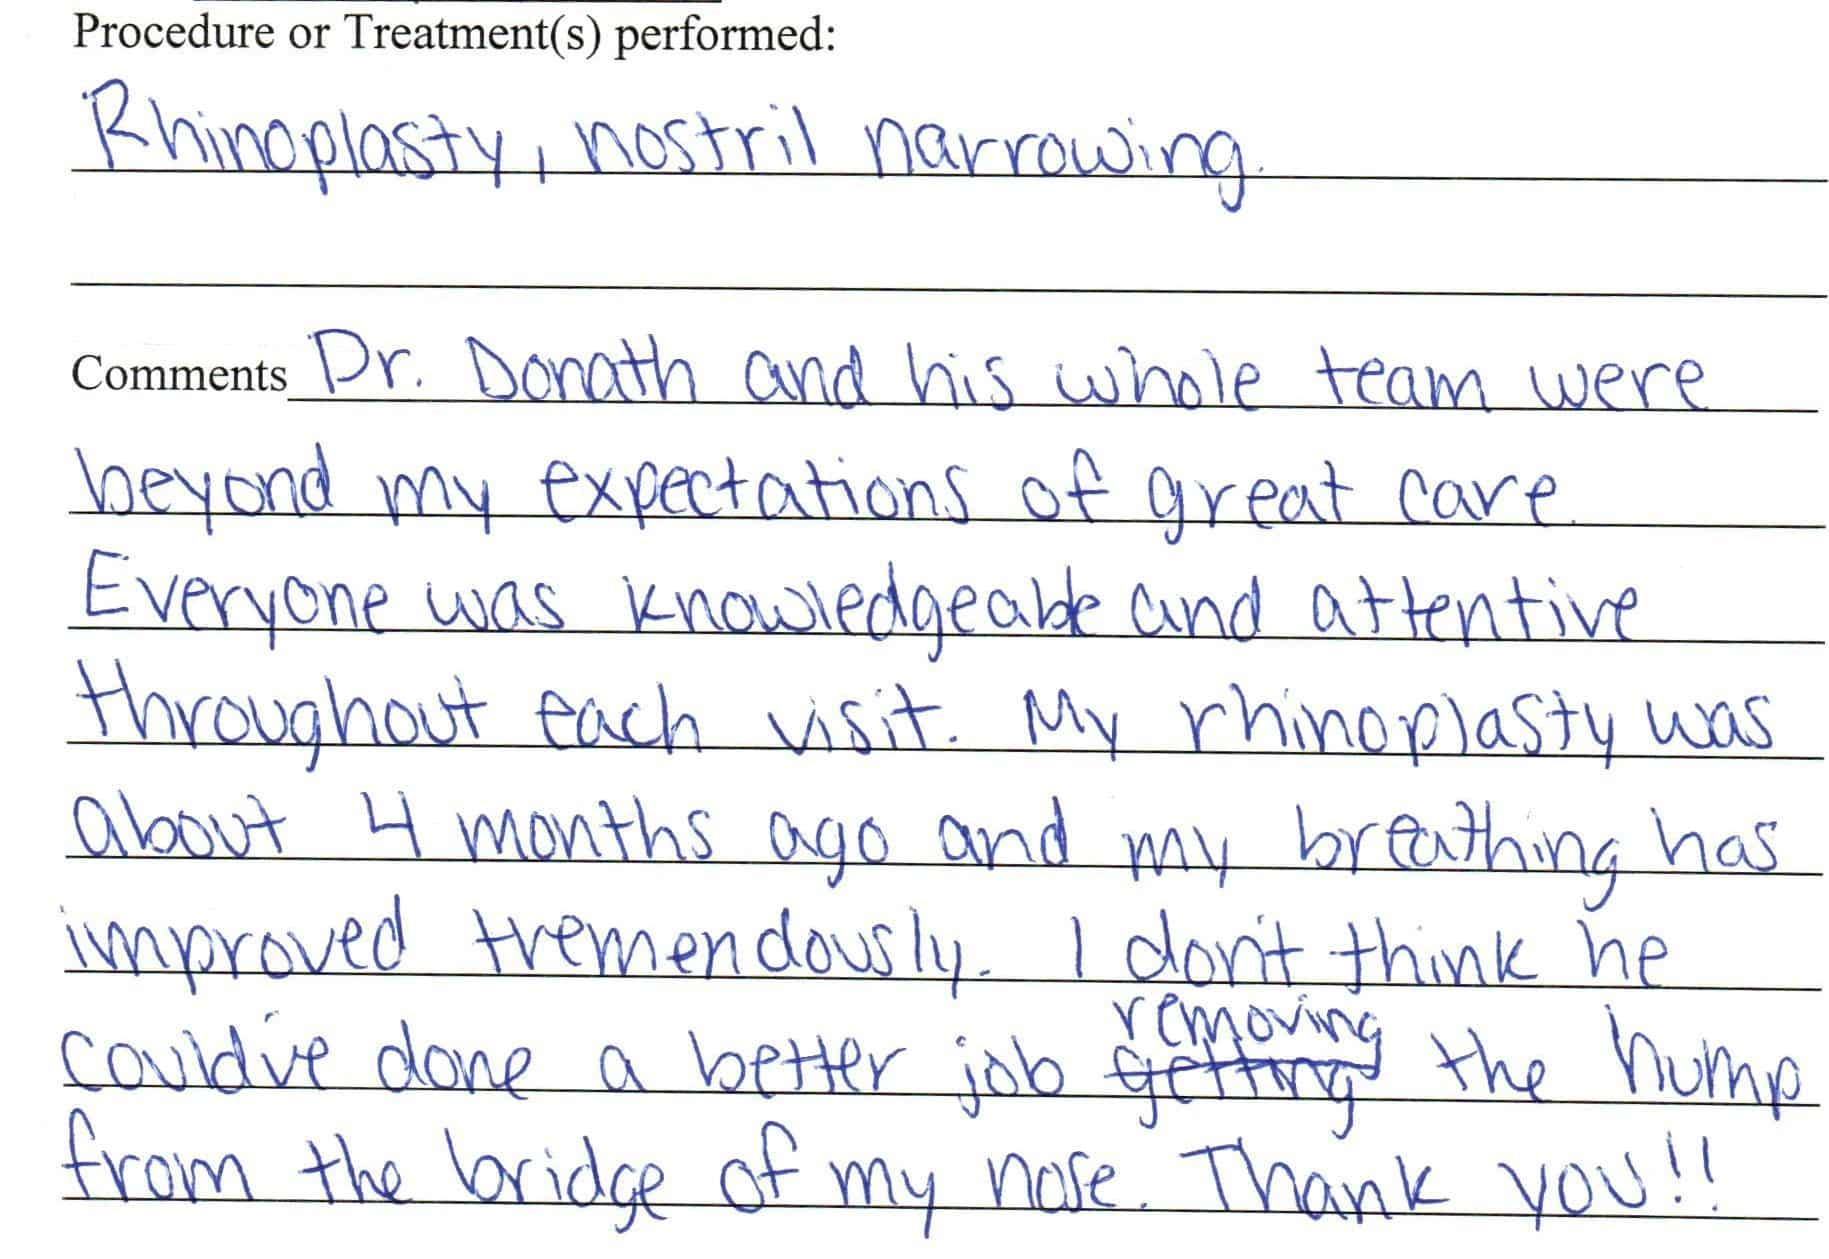 Procedure or Treatment(s) performed:
Rhinoplasty, nostril narrowing.
Comments Dr. Donath and his whole team were
beyond my expectations of great care.
Everyone was knowledgeable and attentive
throughout each visit. My rhinoplasty was
about 4 months ago and my breathing has
improved tremendously. I don't think he
could've done a better job getting removing the hump
from the bridge of my nose. Thank you!!